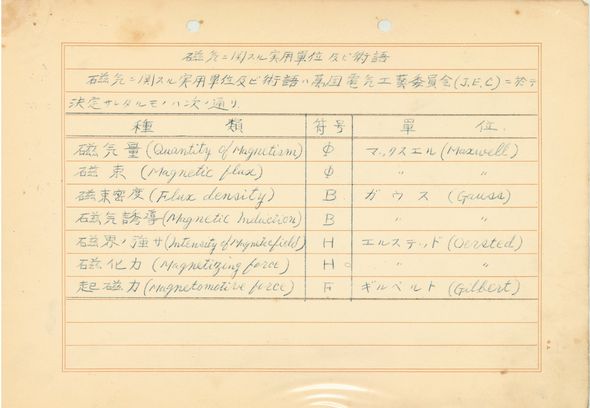 磁気ニ関スル実用單位及ビ術語
磁気ニ関スル実用單位及ビ術語ハ萬国電気工藝委員会(J.E.C)ニ於テ
決定サレタルモノハ次ノ通リ.
種 類 符号 單 位.
磁気量(Quantity of Magnetism) Φ マックスエル(Maxwell)
磁束 (Magnetic flux) Φ 〃 〃
磁束密度(Flux density) B ガウス (Gauss)
磁気誘導(Magnetic Induction) B 〃 〃
磁界ノ強サ(Intensity of Magneticfield) H エルステッド(Oersted)
磁化力 (Magnetizing force) H 〃 〃
起磁力(Magnetomotive force) F ギルベルト(Gilbert)